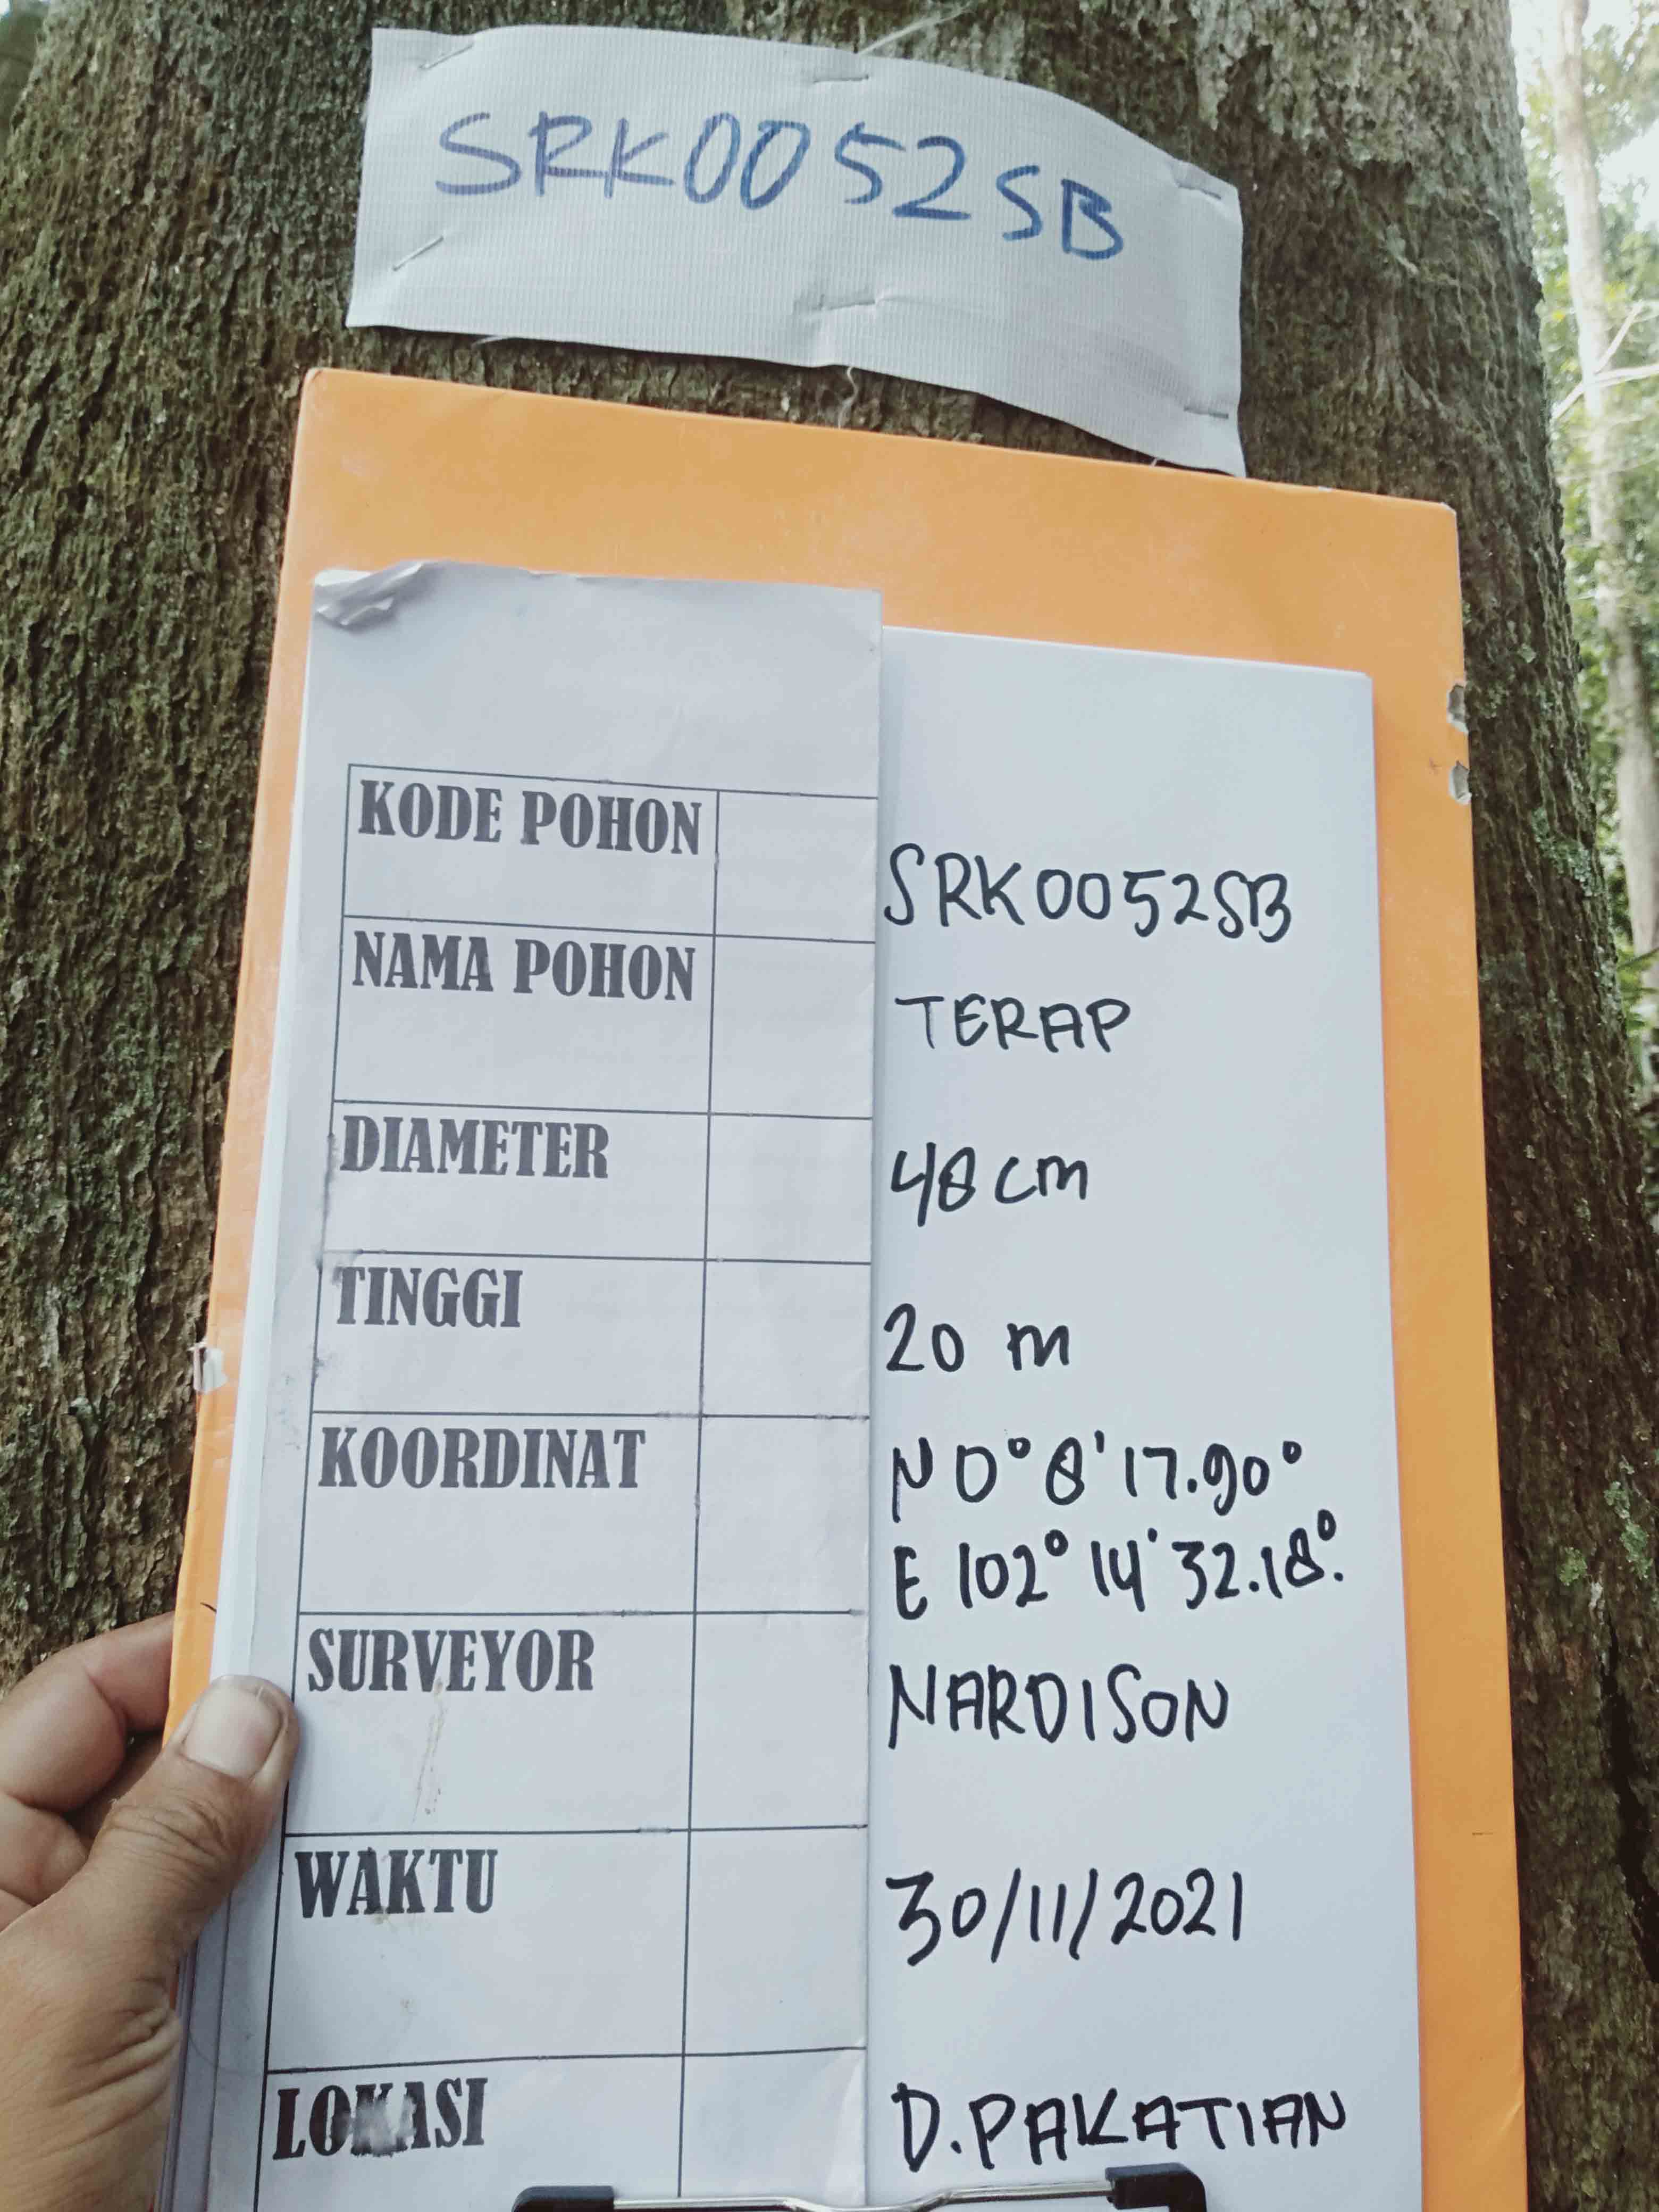 SRK0052SB
KODE POHON SRK0052SB
NAMA POHON TERAP
DIAMETER 48 cm
TINGGI 20 m
KOORDINAT N 0° 8' 17.90°
E 102° 14' 32.18°.
SURVEYOR NARDISON
WAKTU 30/11/2021
LOKASI D.PAKATIAN